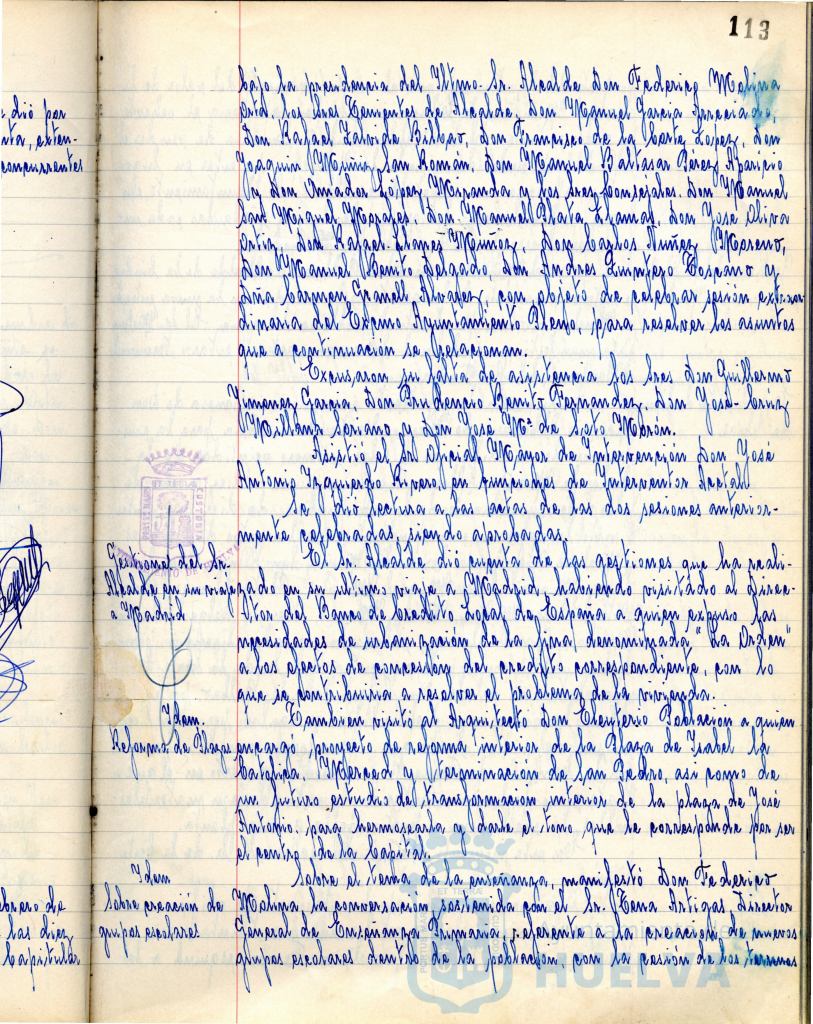 113
dió por
nta, exten-
concurrentes
bajo la presidencia del Iltmo. Sr. Alcalde Don Federico Molina
Ortá, los Sres Tenientes de Alcalde, Don Manuel Garcia
Don Rafael Bilbao, Don Francisco de la Corte Lopez, Don
Joaquin Muñiz San Román, Don Manuel Baltasar Pérez Aparicio
y Don Amador López Miranda y los Sres Concejales. Don Manuel
San Miguel Morales, Don Manuel Plata Llamas, Don José Oliva
Ortiz, Don Rafael Llanes Muñoz, Don Carlos Nuñez Moreno,
Don Manuel Benito Delgado, Don Andres Quintero Toscano y
Dña Carmen Granell Alvarez, con objeto de celebrar sesión extraor
dinaria del Excmo Ayuntamiento Pleno, para resolver los asuntos
que a continuación se relacionan.
Excusaron su falta de asistencia los Sres Don Guillermo
Jimenez Garcia, Don Prudencio Benito Fernandez, Don José-Cruz
Millana Soriano y Don José Mª de Soto Morón.
Asistió el Sr. Oficial Mayor de Intervención Don José
Antonio Izquierdo Rivero, en funciones de Interventor Acctal.
Se dió lectura a las actas de las dos sesiones anterior-
mente celebradas, siendo aprobadas.
Gestiones del Sr.
Alcalde en su viaje
a Madrid
El Sr. Alcalde dió cuenta de las gestiones que ha reali-
zado en su ultimo viaje a Madrid, habiendo visitado al Direc-
tor del Banco de Credito Local de España a quien expuso las
necesidades de urbanización de la finca denominada "La Orden"
a los efectos de concesion del credito correspondiente, con lo
que se contribuiria a resolver el problema de la vivienda.
Idem.
Reforma de Plazas
Tambien visitó al Arquitecto Don Eleuterio Población a quien
encargó proyecto de reforma interior de la Plaza de Isabel la
Catolica, Merced y terminación de San Pedro, asi como de
un futuro estudio de transformación interior de la plaza de José
Antonio, para hermosearla y darle el tono que le corresponde por ser
el centro de la Capital.
Idem
sobre creación de
grupos escolares
Sobre el tema de la enseñanza, manifestó Don Federico
Molina la conversación sostenida con el Sr. Tena Artigas Director
General de Enseñanza Primaria, referente a la creación de nuevos
grupos escolares dentro de la población, con la cesión de los terrenos
ebrero de
las diez
Capitular
HUELVA